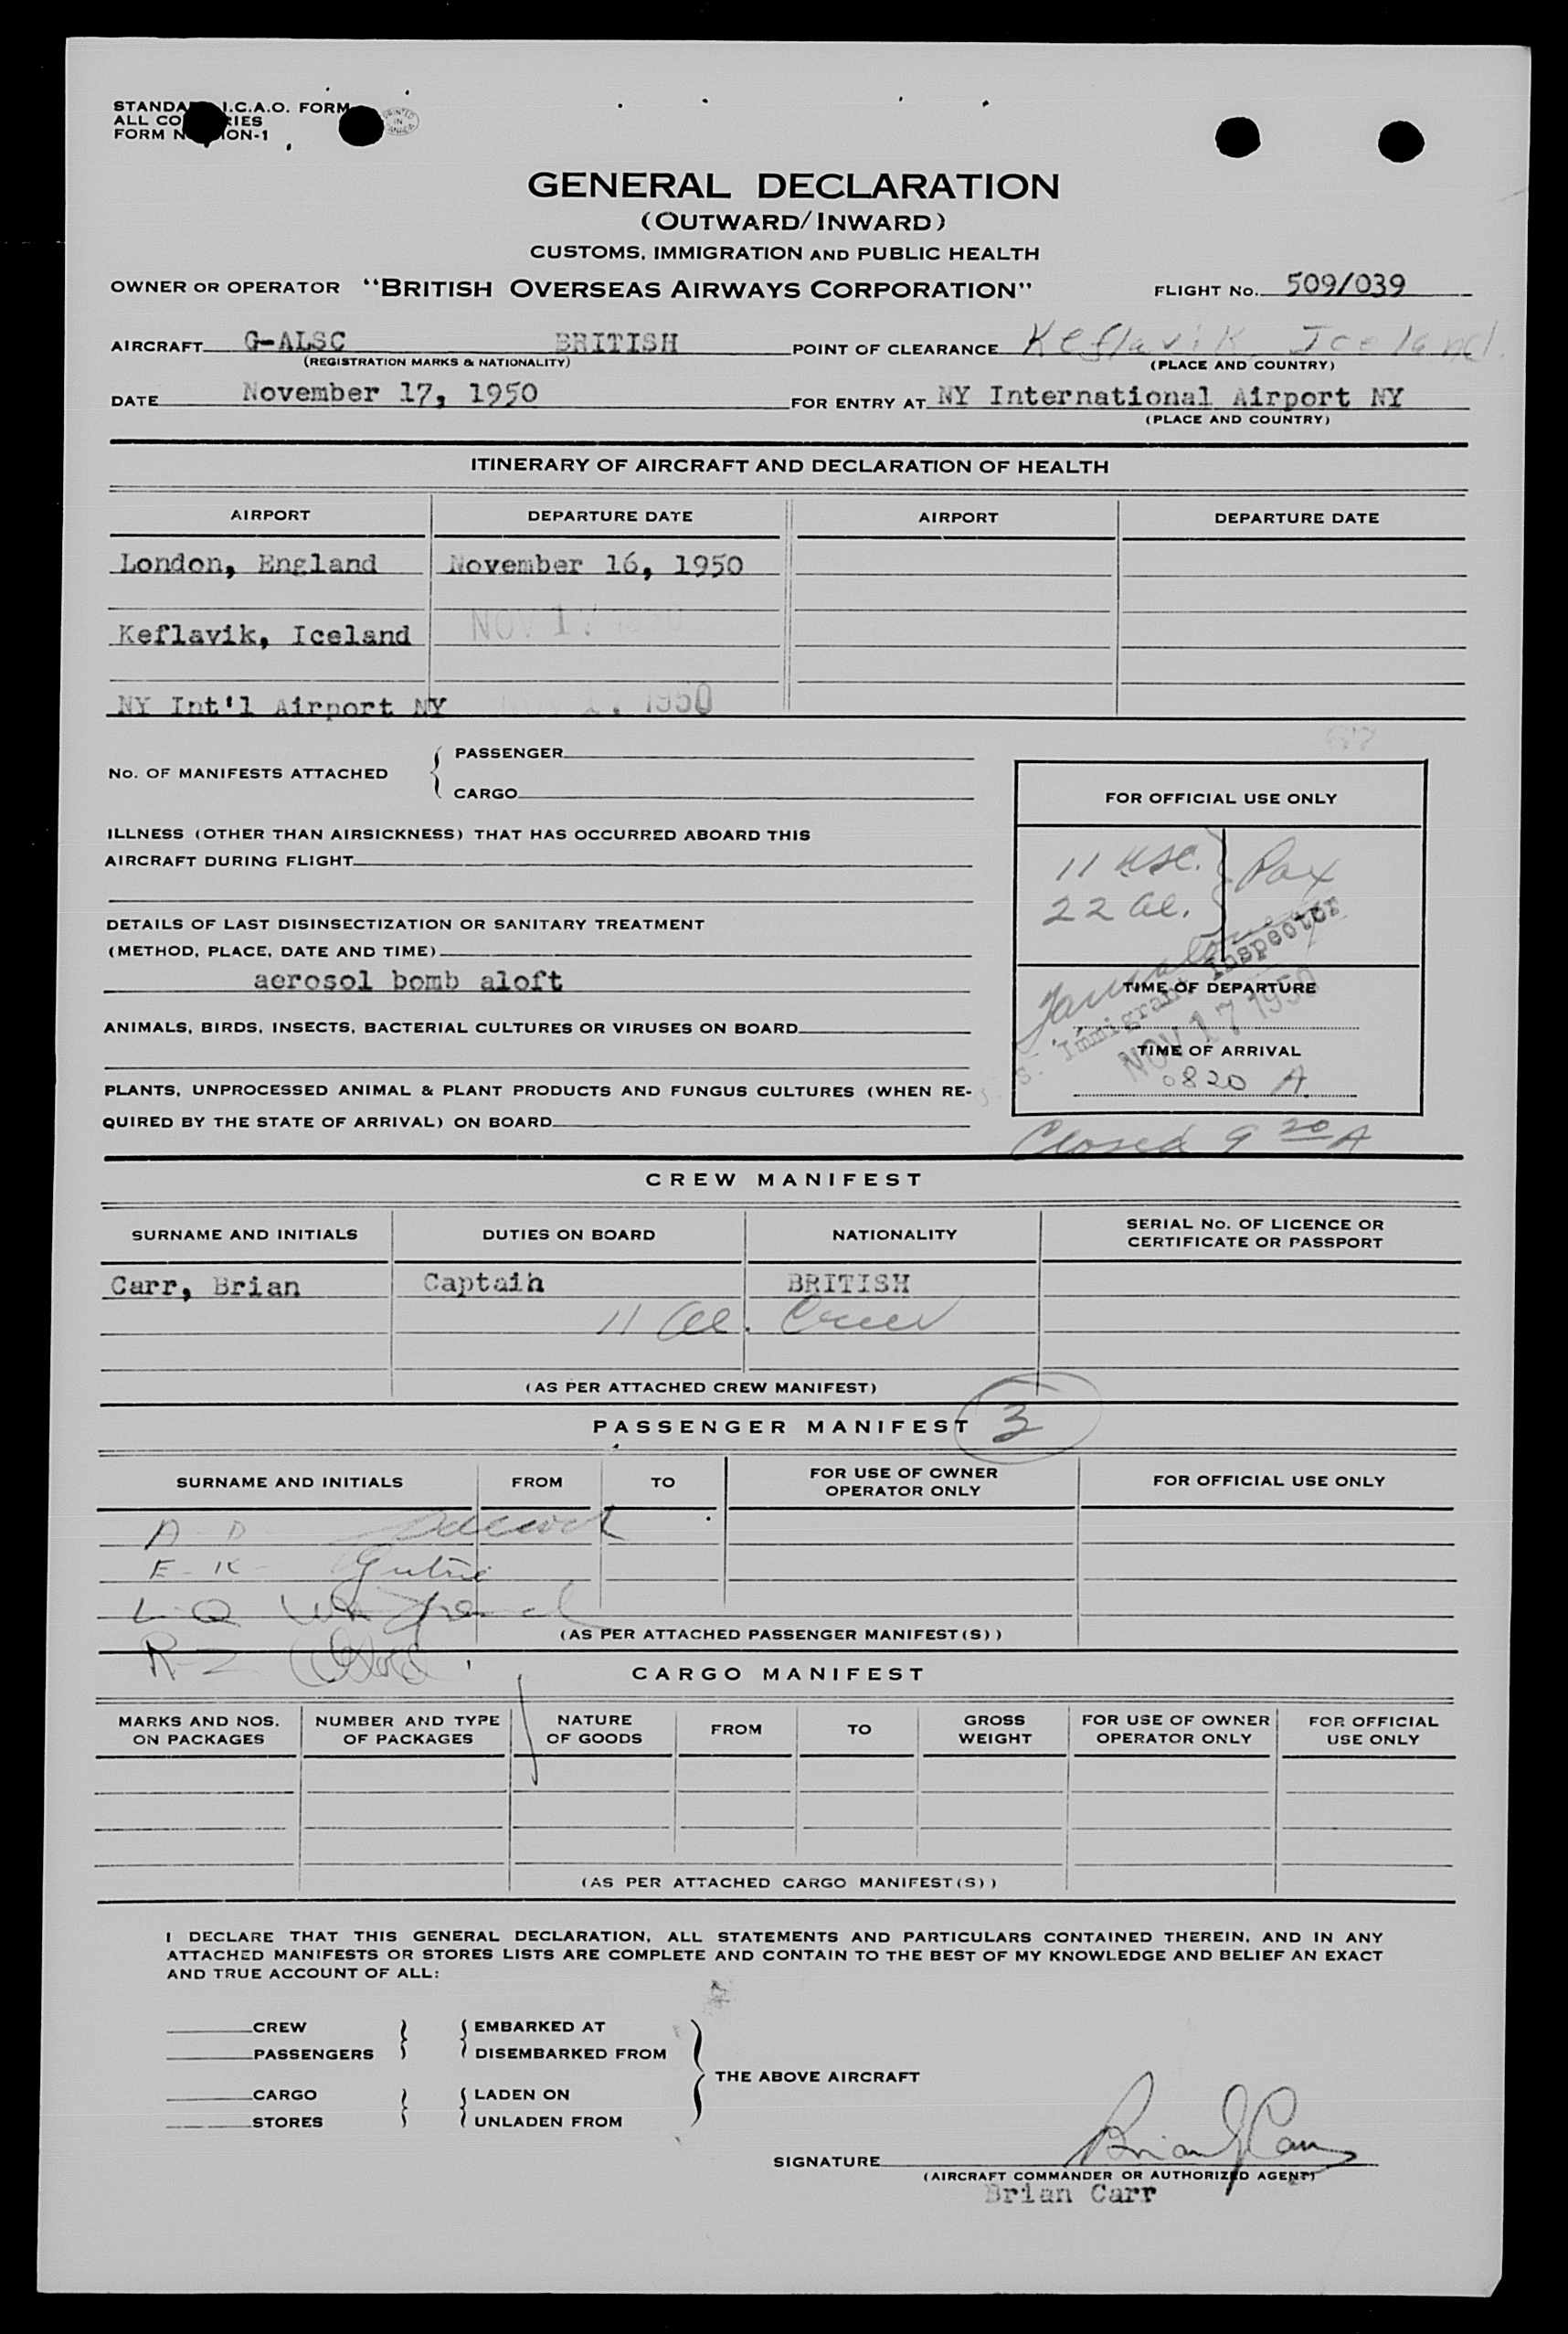 STANDA I.C.A.O. FORM
ALL CO RIES
FORM N ION-1
PRINTED IN CANADA
GENERAL DECLARATION
(OUTWARD/INWARD)
CUSTOMS, IMMIGRATION AND PUBLIC HEALTH
OWNER OR OPERATOR "BRITISH OVERSEAS AIRWAYS CORPORATION" FLIGHT No. 509/039
AIRCRAFT G-ALSC BRITISH POINT OF CLEARANCE Keflavik Iceland.
(REGISTRATION MARKS & NATIONALITY) (PLACE AND COUNTRY)
DATE November 17, 1950 FOR ENTRY AT NY International Airport NY
(PLACE AND COUNTRY)
ITINERARY OF AIRCRAFT AND DECLARATION OF HEALTH
AIRPORT DEPARTURE DATE AIRPORT DEPARTURE DATE
London, England November 16, 1950
Keflavik, Iceland NOV 17
NY Int'l Airport NY 1950
No. OF MANIFESTS ATTACHED { PASSENGER
CARGO
ILLNESS (OTHER THAN AIRSICKNESS) THAT HAS OCCURRED ABOARD THIS
AIRCRAFT DURING FLIGHT
DETAILS OF LAST DISINSECTIZATION OR SANITARY TREATMENT
(METHOD, PLACE, DATE AND TIME)
aerosol bomb aloft
ANIMALS, BIRDS, INSECTS, BACTERIAL CULTURES OR VIRUSES ON BOARD
PLANTS, UNPROCESSED ANIMAL & PLANT PRODUCTS AND FUNGUS CULTURES (WHEN RE-
QUIRED BY THE STATE OF ARRIVAL) ON BOARD
FOR OFFICIAL USE ONLY
11 USC. } Pax
22 al.
Immigrant Inspector
TIME OF DEPARTURE
NOV 17 1950
TIME OF ARRIVAL
0820 A.
Closed 9 20 A
CREW MANIFEST
SURNAME AND INITIALS DUTIES ON BOARD NATIONALITY SERIAL No. OF LICENCE OR
CERTIFICATE OR PASSPORT
Carr, Brian Captain BRITISH
11 al. Crew
(AS PER ATTACHED CREW MANIFEST)
PASSENGER MANIFEST 3
SURNAME AND INITIALS FROM TO FOR USE OF OWNER
OPERATOR ONLY FOR OFFICIAL USE ONLY
A - D
E - K
L - Q
R - Z
(AS PER ATTACHED PASSENGER MANIFEST(S))
CARGO MANIFEST
MARKS AND NOS. NUMBER AND TYPE NATURE FROM TO GROSS FOR USE OF OWNER FOR OFFICIAL
ON PACKAGES OF PACKAGES OF GOODS WEIGHT OPERATOR ONLY USE ONLY
(AS PER ATTACHED CARGO MANIFEST(S))
I DECLARE THAT THIS GENERAL DECLARATION, ALL STATEMENTS AND PARTICULARS CONTAINED THEREIN, AND IN ANY
ATTACHED MANIFESTS OR STORES LISTS ARE COMPLETE AND CONTAIN TO THE BEST OF MY KNOWLEDGE AND BELIEF AN EXACT
AND TRUE ACCOUNT OF ALL:
CREW } { EMBARKED AT
PASSENGERS DISEMBARKED FROM
} THE ABOVE AIRCRAFT
CARGO } { LADEN ON
STORES UNLADEN FROM
SIGNATURE Brian J Carr
(AIRCRAFT COMMANDER OR AUTHORIZED AGENT)
Brian Carr